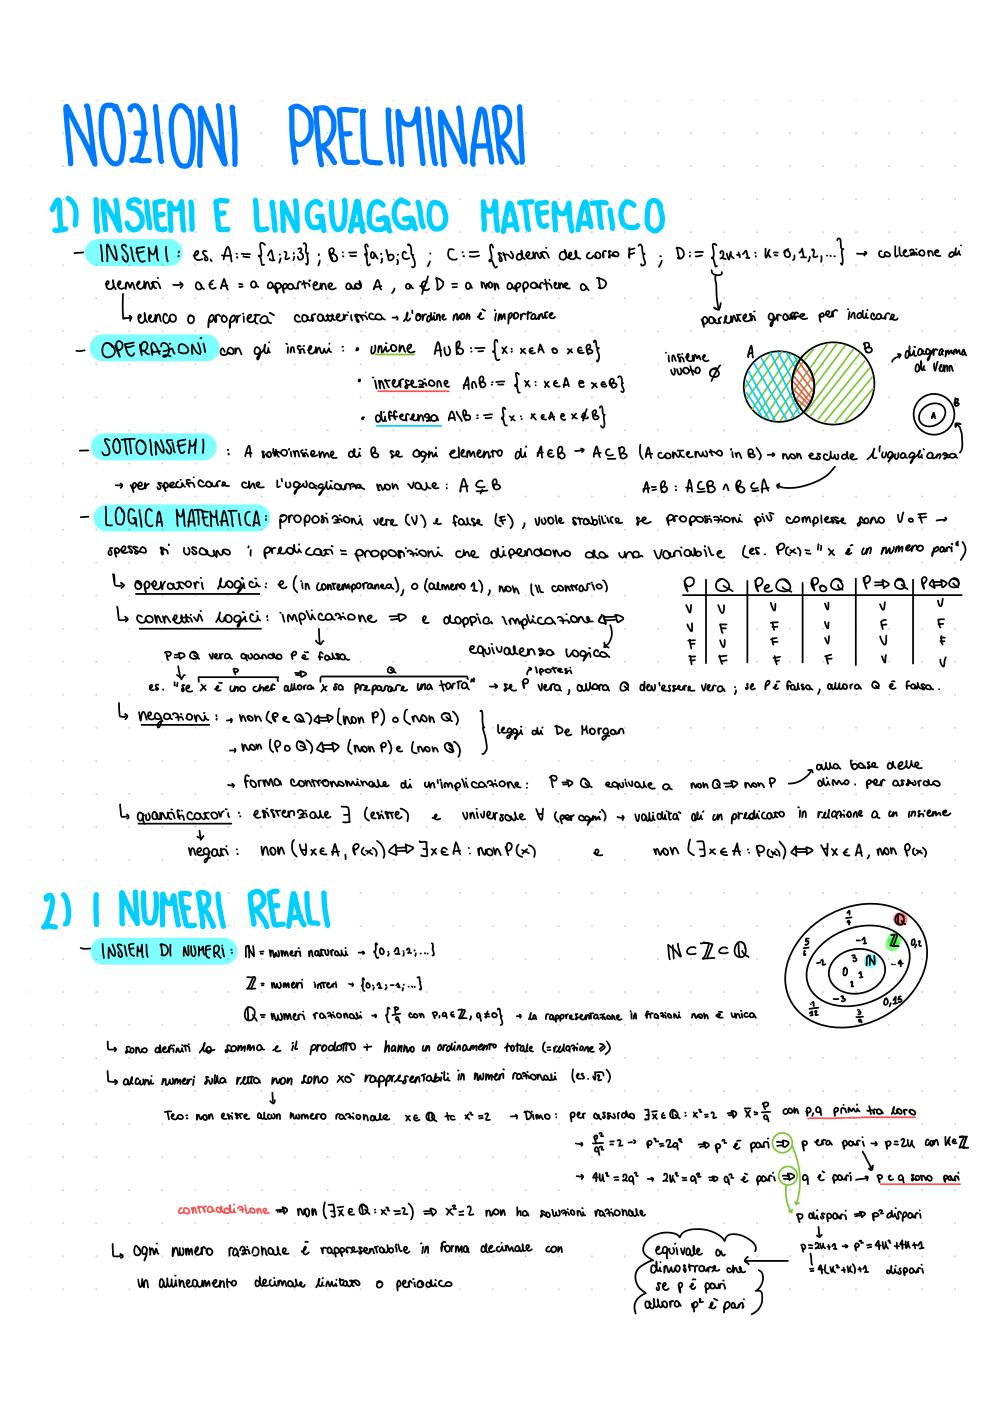 NOZIONI PRELIMINARI
1) INSIEMI E LINGUAGGIO MATEMATICO
- INSIEMI: es. A:= {1;2;3} ; B:= {a;b;c} ; C:= {studenti del corso F} ; D:= {2k+1: k=0,1,2,...} → collezione di
elementi → a∈A = a appartiene ad A , a∉D = a non appartiene a D
↳ elenco o proprietà caratteristica → l'ordine non è importante
parentesi graffe per indicare
- OPERAZIONI con gli insiemi: • unione A∪B := {x: x∈A o x∈B}
• intersezione A∩B := {x: x∈A e x∈B}
• differenza A\B := {x: x∈A e x∉B}
insieme
vuoto ∅
A B
→ diagramma
di Venn
A B
- SOTTOINSIEMI : A sottoinsieme di B se ogni elemento di A∈B → A⊆B (A contenuto in B) → non esclude l'uguaglianza
→ per specificare che l'uguaglianza non vale: A⊊B
A=B : A⊆B ∧ B⊆A
- LOGICA MATEMATICA: proposizioni vere (V) e false (F), vuole stabilire se proposizioni più complesse sono V o F →
spesso si usano i predicati = proposizioni che dipendono da una variabile (es. P(x)= "x è un numero pari")
↳ operatori logici: e (in contemporanea), o (almeno 1), non (il contrario)
↳ connettivi logici: implicazione ⇒ e doppia implicazione ⇔
equivalenza logica
P | Q | P e Q | P o Q | P⇒Q | P⇔Q
V | V | V | V | V | V
V | F | F | V | F | F
F | V | F | V | V | F
F | F | F | F | V | V
P⇒Q vera quando P è falsa
P ⇒ Q
ipotesi
es. "se x è uno chef allora x sa preparare una torta" → se P vera, allora Q dev'essere vera ; se P è falsa, allora Q è falsa.
↳ negazioni: → non (P e Q)⇔(non P) o (non Q)
→ non (P o Q)⇔(non P) e (non Q)
leggi di De Morgan
→ forma contronominale di un'implicazione: P⇒Q equivale a non Q⇒non P
alla base delle
dimo. per assurdo
↳ quantificatori: esistenziale ∃ (esiste) e universale ∀ (per ogni) → validità di un predicato in relazione a un insieme
negati: non (∀x∈A, P(x))⇔∃x∈A : non P(x) e non (∃x∈A : P(x))⇔∀x∈A, non P(x)
2) I NUMERI REALI
- INSIEMI DI NUMERI: ℕ = numeri naturali → {0;1;2;...}
ℤ = numeri interi → {0;1;-1;...}
ℚ = numeri razionali → {p/q con p,q∈ℤ, q≠0} → la rappresentazione in frazioni non è unica
ℕ⊂ℤ⊂ℚ
ℚ
ℤ
ℕ
-1 0,2
-2 3 -4
0 1
2
-3 0,15
↳ sono definiti la somma e il prodotto + hanno un ordinamento totale (=relazione ≥)
↳ alcuni numeri sulla retta non sono xò rappresentabili in numeri razionali (es. √2)
Teo: non esiste alcun numero razionale x∈ℚ tc x²=2 → Dimo: per assurdo ∃x̄∈ℚ : x²=2 ⇒ x̄=p/q con p,q primi tra loro
→ p²/q²=2 → p²=2q² ⇒ p² è pari ⇒ p era pari → p=2k con k∈ℤ
→ 4k²=2q² → 2k²=q² ⇒ q² è pari ⇒ q è pari → p e q sono pari
contraddizione ⇒ non (∃x̄∈ℚ : x²=2) ⇒ x²=2 non ha soluzioni razionale
p dispari ⇒ p² dispari
p=2k+1 → p²=4k²+4k+1
=4(k²+k)+1 dispari
equivale a
dimostrare che
se p è pari
allora p² è pari
↳ Ogni numero razionale è rappresentabile in forma decimale con
un allineamento decimale limitato o periodico